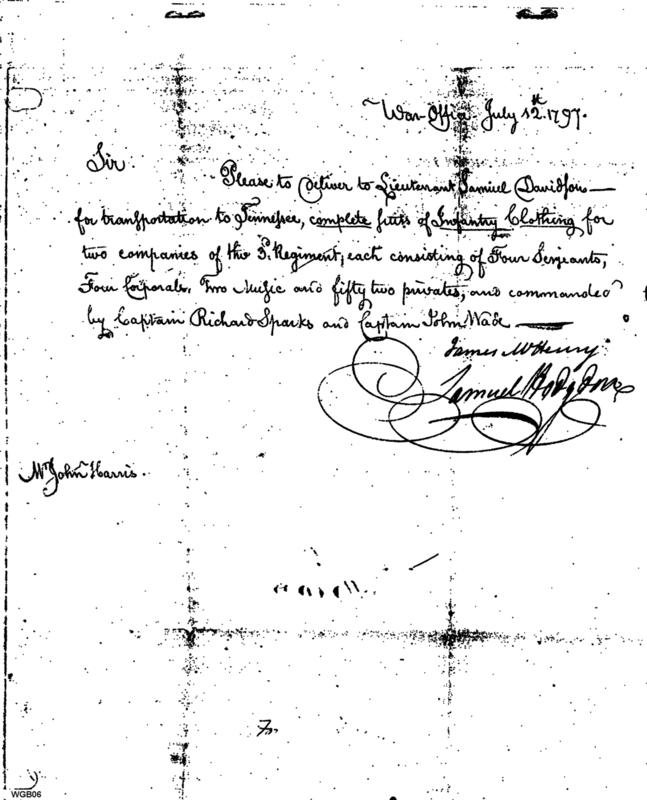 War Office July 12th 1797.
Sir.
Please to deliver to Lieutenant Samuel Davidson
for transportation to Tennessee, complete suits of Infantry Clothing for
two companies of the 3d. Regiment; each consisting of Four Serjeants,
Four Corporals, Two Music and fifty two privates, and commanded
by Captain Richard Sparks and Captain John Wade
James McHenry.
Samuel Hodgdon
Mr. John Harris.
WGB06